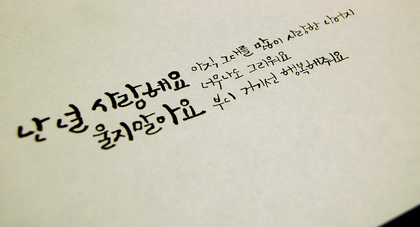 난 널 사랑해요
울지말아요
아직 그대를 많이 사랑한
너무나도 그리워요
부디 거기선 행복해줘요